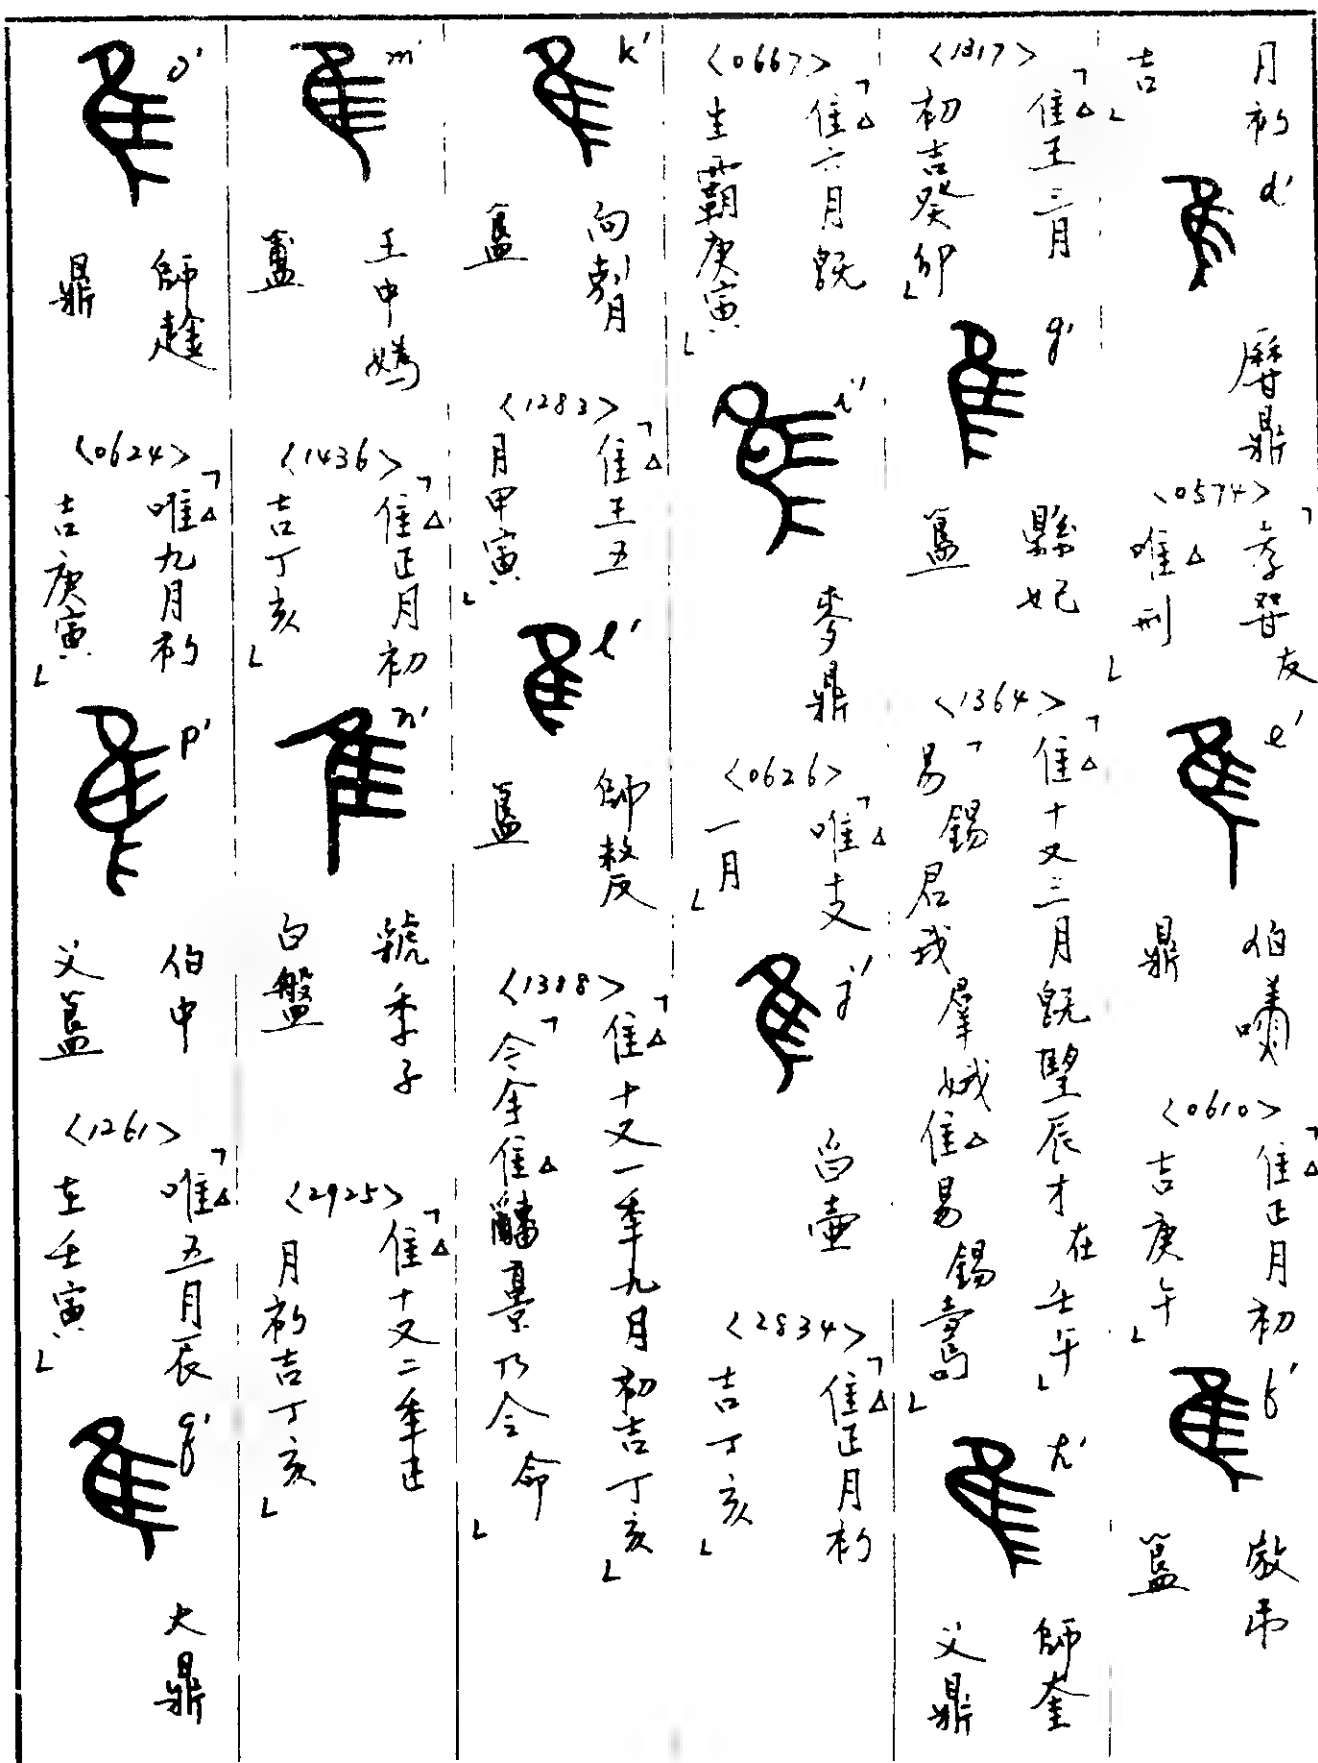 月初
吉」
d'
曆鼎
<0574>
「孝友
唯△刑」
e'
伯
鼎
<0610>
「隹△正月初
吉庚午」
f'
簋
<1317>
「隹△王三月
初吉癸卯」
g'
縣妃
簋
<1364>
「隹△十又三月既朢辰才在壬午」
「易錫君我隹△易錫壽」
h'
師奎
父鼎
<0667>
「隹△六月既
生霸庚寅」
i'
麥鼎
<0626>
「唯△
一月」
j'
白壺
<2834>
「隹△正月初
吉丁亥」
k'
向
簋
<1283>
「隹△王五
月甲寅」
l'
師
簋
<1388>
「隹△十又一年九月初吉丁亥」
「令余隹△乃令命」
m'
王中媯
<1436>
「隹△正月初
吉丁亥」
n'
虢季子
白盤
<2925>
「隹△十又二年正
月初吉丁亥」
o'
師趛
鼎
<0624>
「唯△九月初
吉庚寅」
p'
伯中
父簋
<1261>
「唯△五月辰
在壬寅」
q'
大鼎